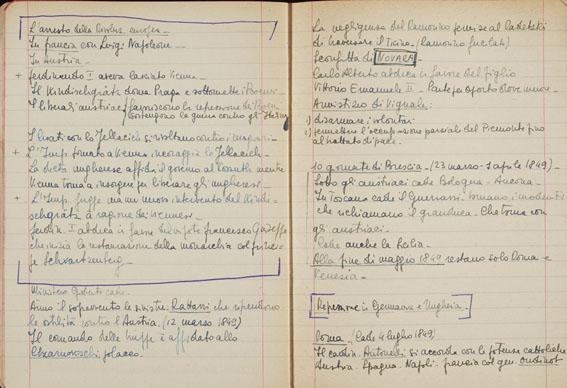 L'arresto della Rivoluz. europea
In Francia con Luigi Napoleone
In Austria
+ Ferdinando I aveva lasciato Vienna
Il Windischgrätz doma Praga e sottomette i Boemi
I liberali austriaci favoriscono la repressione di Boemi
contengono la guerra contro gli
I Croati con lo Jellacich si rivoltano contro i magiari
+ L'Imp. tornato a Vienna incoraggia lo Jellacich
La dieta ungherese affida il governo al Kossuth mentre
Vienna torna a insorgere per liberare gli ungheresi
+ L'Imp. fugge ma un nuovo intervento del Windi-
schgrätz à ragione dei viennesi
Ferdin. I abdica in favore del nipote Francesco Giuseppe
che inizia la restaurazione della monarchia col princi-
pe Schwartzenberg
Ministero Gioberti cade.
Anno il sopravvento le sinistre. Rattazzi che riprendono
le ostilità contro l'Austria. (12 marzo 1849)
Il comando delle truppe è affidato allo
Chzarnowschi polacco.
La negligenza del Ramorino permise al Radetski
di traversare il Ticino (Ramorino fucilato)
Sconfitta di NOVARA
Carlo Alberto abdica in favore del figlio
Vittorio Emanuele II. Parte per Oporto dove muore
Armistizio di Vignale:
1) disarmare i volontari
2) permettere l'occupazione parziale del Piemonte fino
al trattato di pace.
10 giornate di Brescia (23 marzo - 1 aprile 1849)
Sotto gli austriaci cade Bologna - Ancona.
In Toscana cade il Guerrazzi. Tornano i moderati
che richiamano il granduca. Che torna con
gli austriaci.
Cade anche la Sicilia.
Alla fine di maggio 1849 restano solo Roma e
Venezia.
Repressione in Germania e Ungheria
Roma (Cade 4 luglio 1849)
Il cardin. Antonelli si accorda con le potenze cattoliche
Austria. Spagna. Napoli. Francia col gen. Oudinot